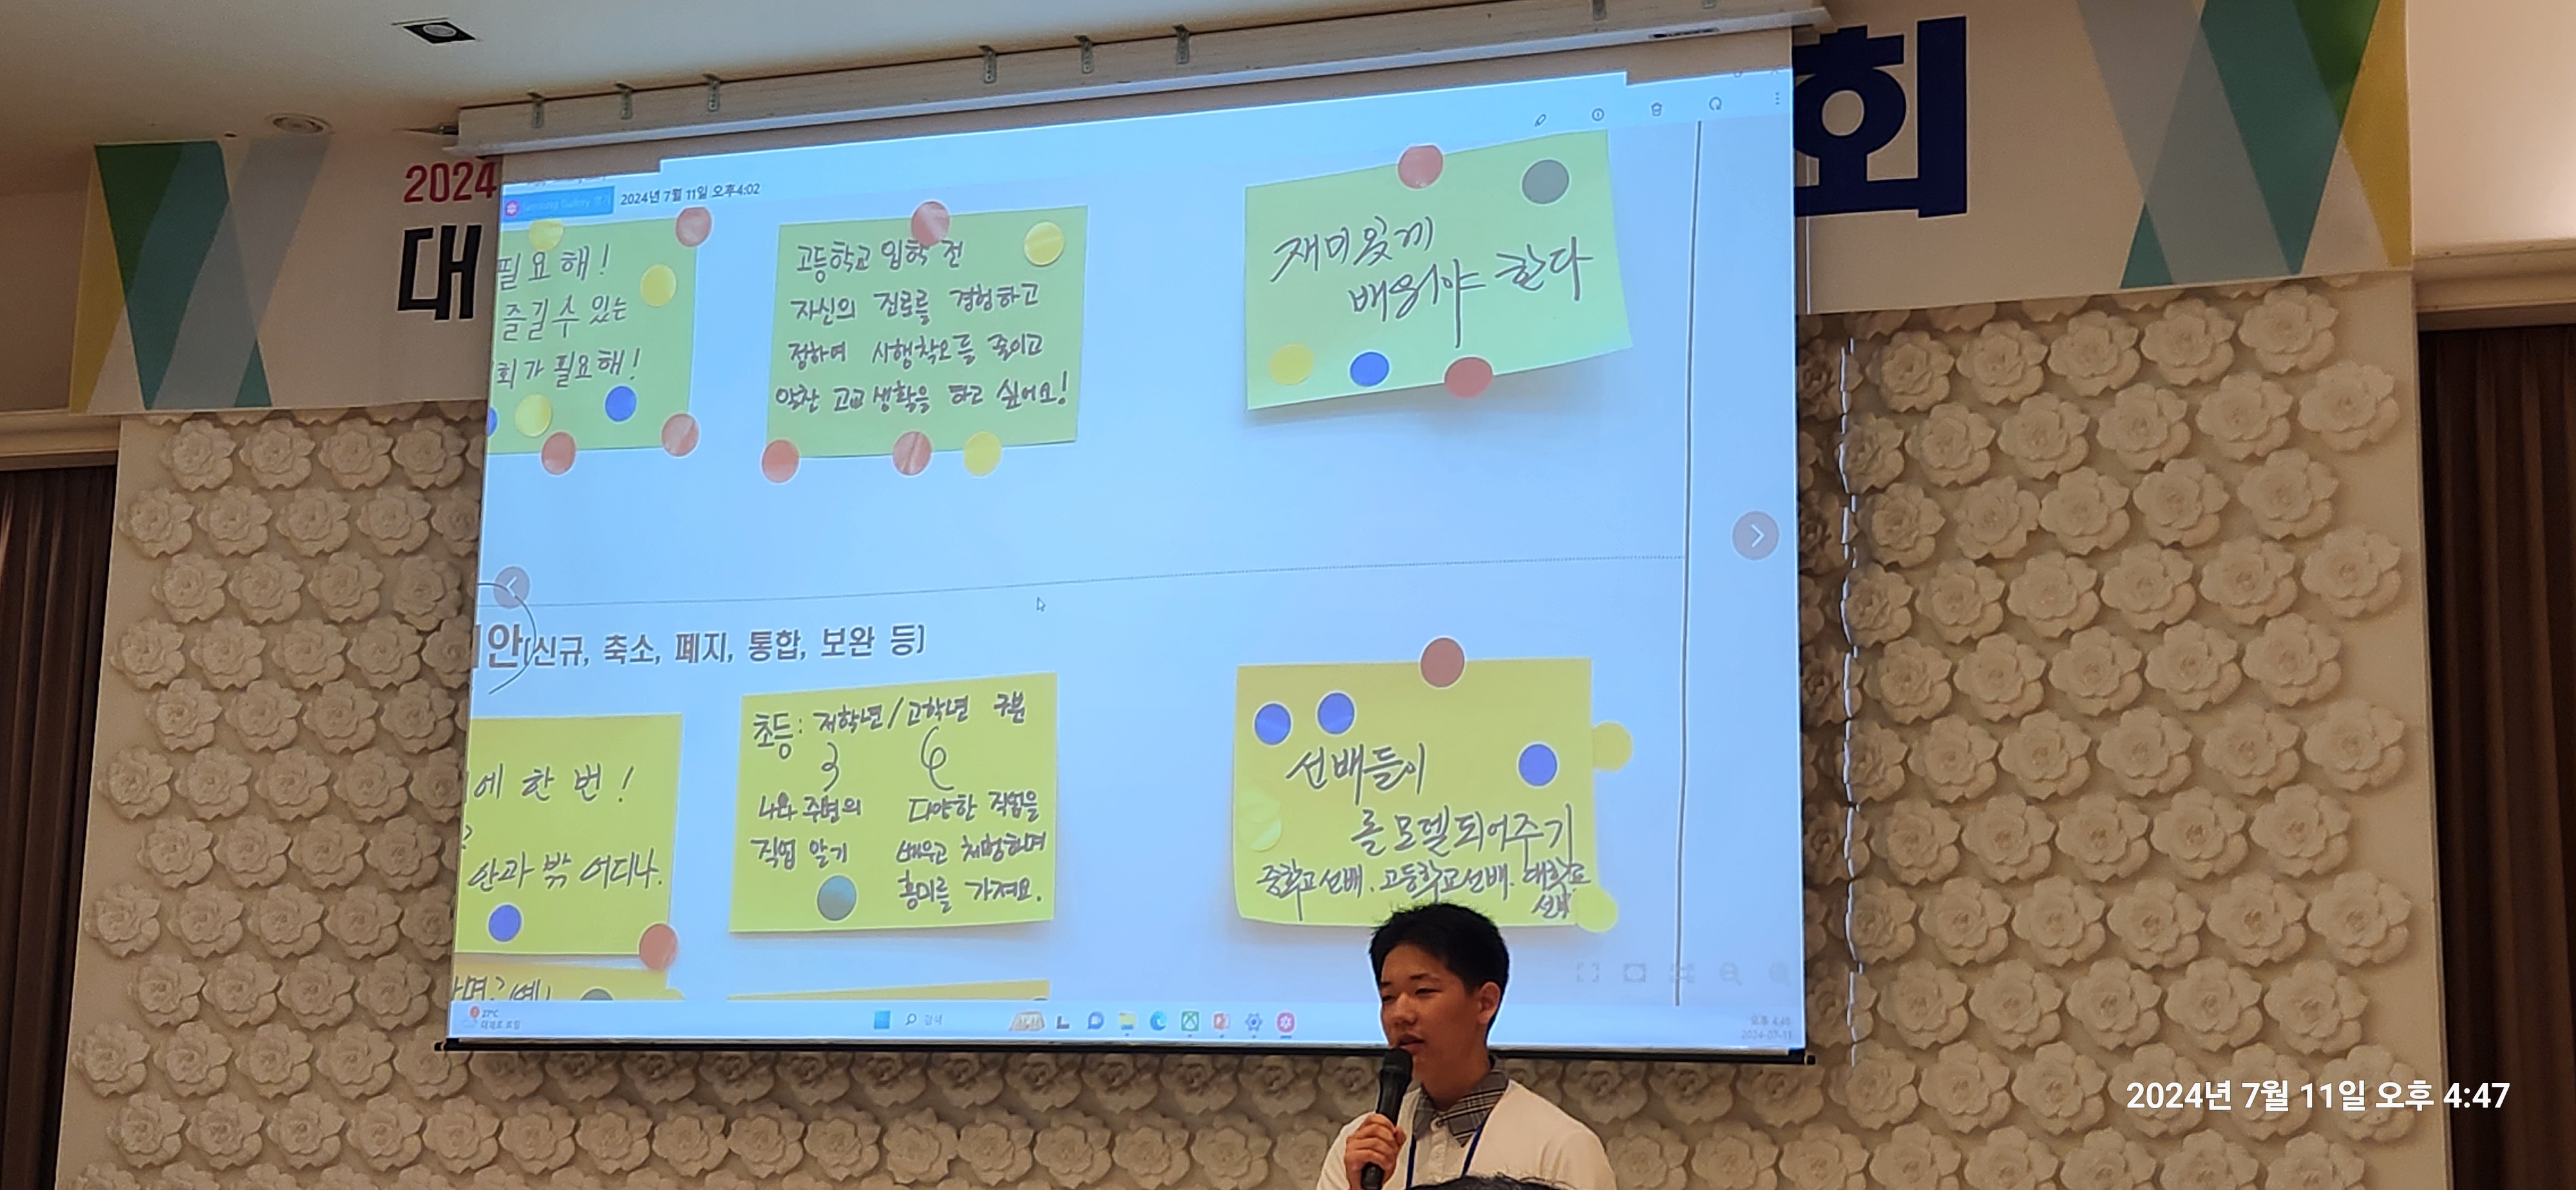 2024
대
회
2024년 7월 11일 오후4:02
필요해!
즐길 수 있는
회가 필요해!
고등학교 입학 전
자신의 진로를 경험하고
정하여 시행착오를 줄이고
알찬 고교 생활을 하고 싶어요!
재미있게
배워야 한다
안(신규, 축소, 폐지, 통합, 보완 등)
에 한 번!
안과 밖 어디나.
초등: 저학년/고학년 구분
3 6
나와 주변의
직업 알기
다양한 직업을
배우고 체험하며
흥미를 가져요.
선배들이
롤모델 되어주기
중학교선배, 고등학교선배, 대학교
선배
27°C
검색
2024-07-11
2024년 7월 11일 오후 4:47